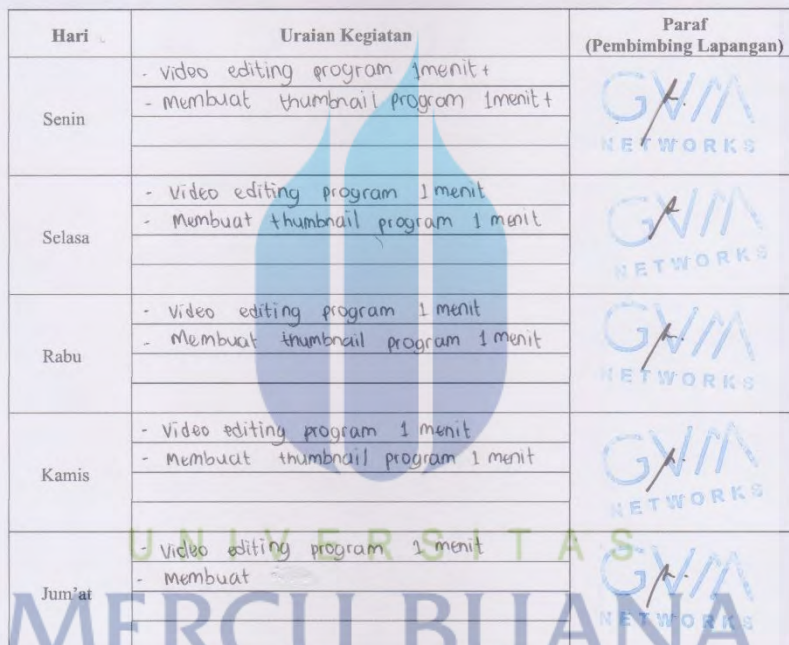 Hari Uraian Kegiatan Paraf
(Pembimbing Lapangan)
Senin
- video editing program 1menit+
- membuat thumbnail program 1menit+
GVM
NETWORKS
Selasa
- Video editing program 1 menit
- Membuat thumbnail program 1 menit
GVM
NETWORKS
Rabu
- Video editing program 1 menit
- Membuat thumbnail program 1 menit
GVM
NETWORKS
Kamis
- Video editing program 1 menit
- Membuat thumbnail program 1 menit
GVM
NETWORKS
Jum'at
- Video editing program 1 menit
- Membuat
GVM
NETWORKS
UNIVERSITAS
MERCU BUANA